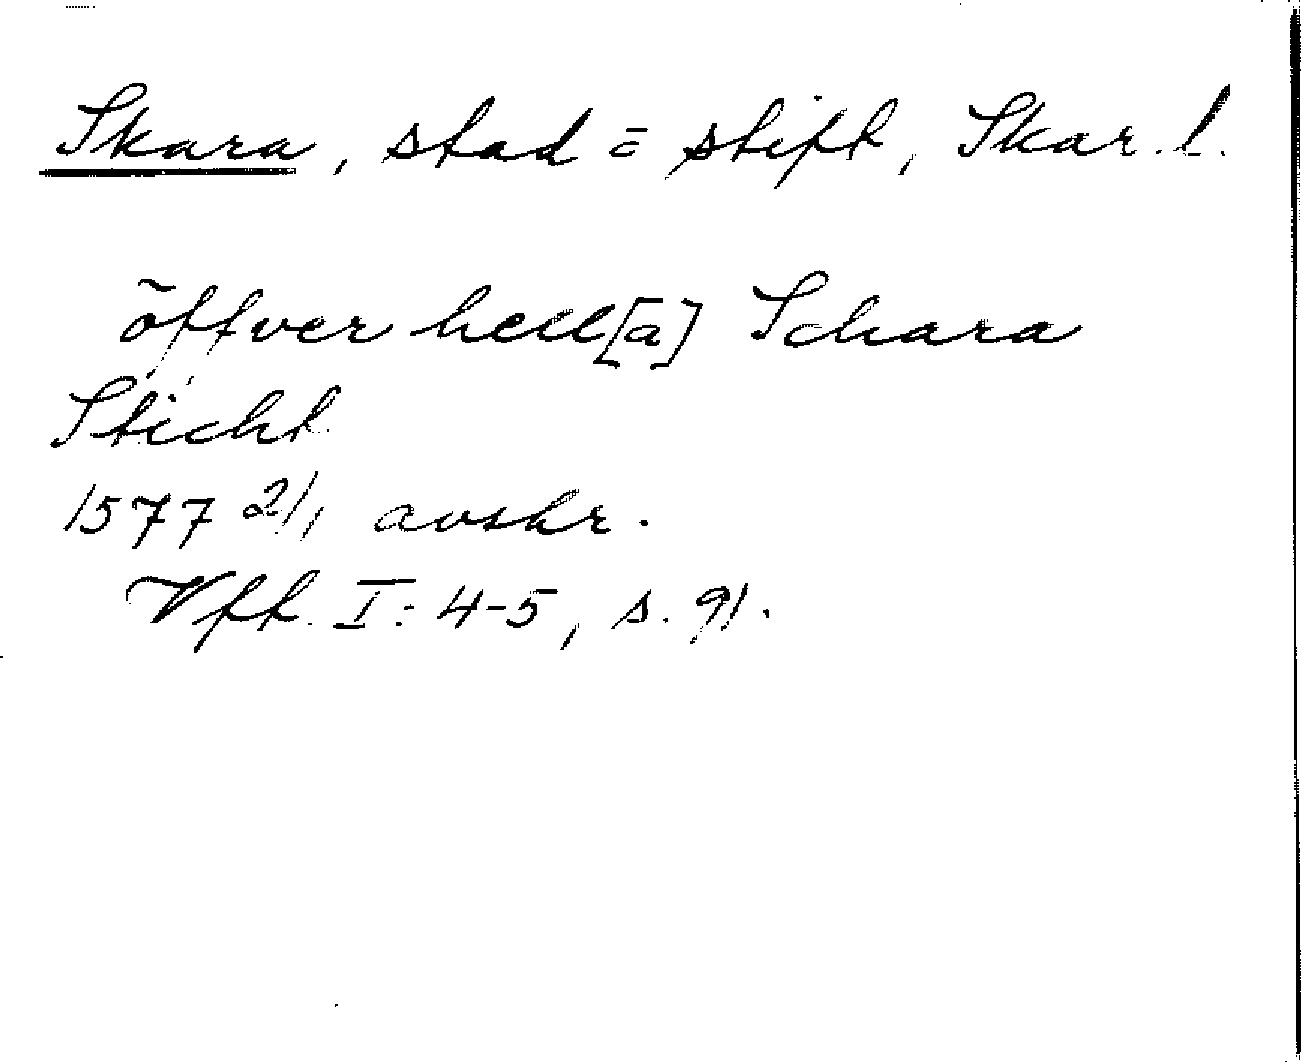 Skara, stad = stift, Skar. l.
öffver hell[a] Schara
Sticht
1577 2/1 avskr.
Vff. I: 4-5, s. 91.